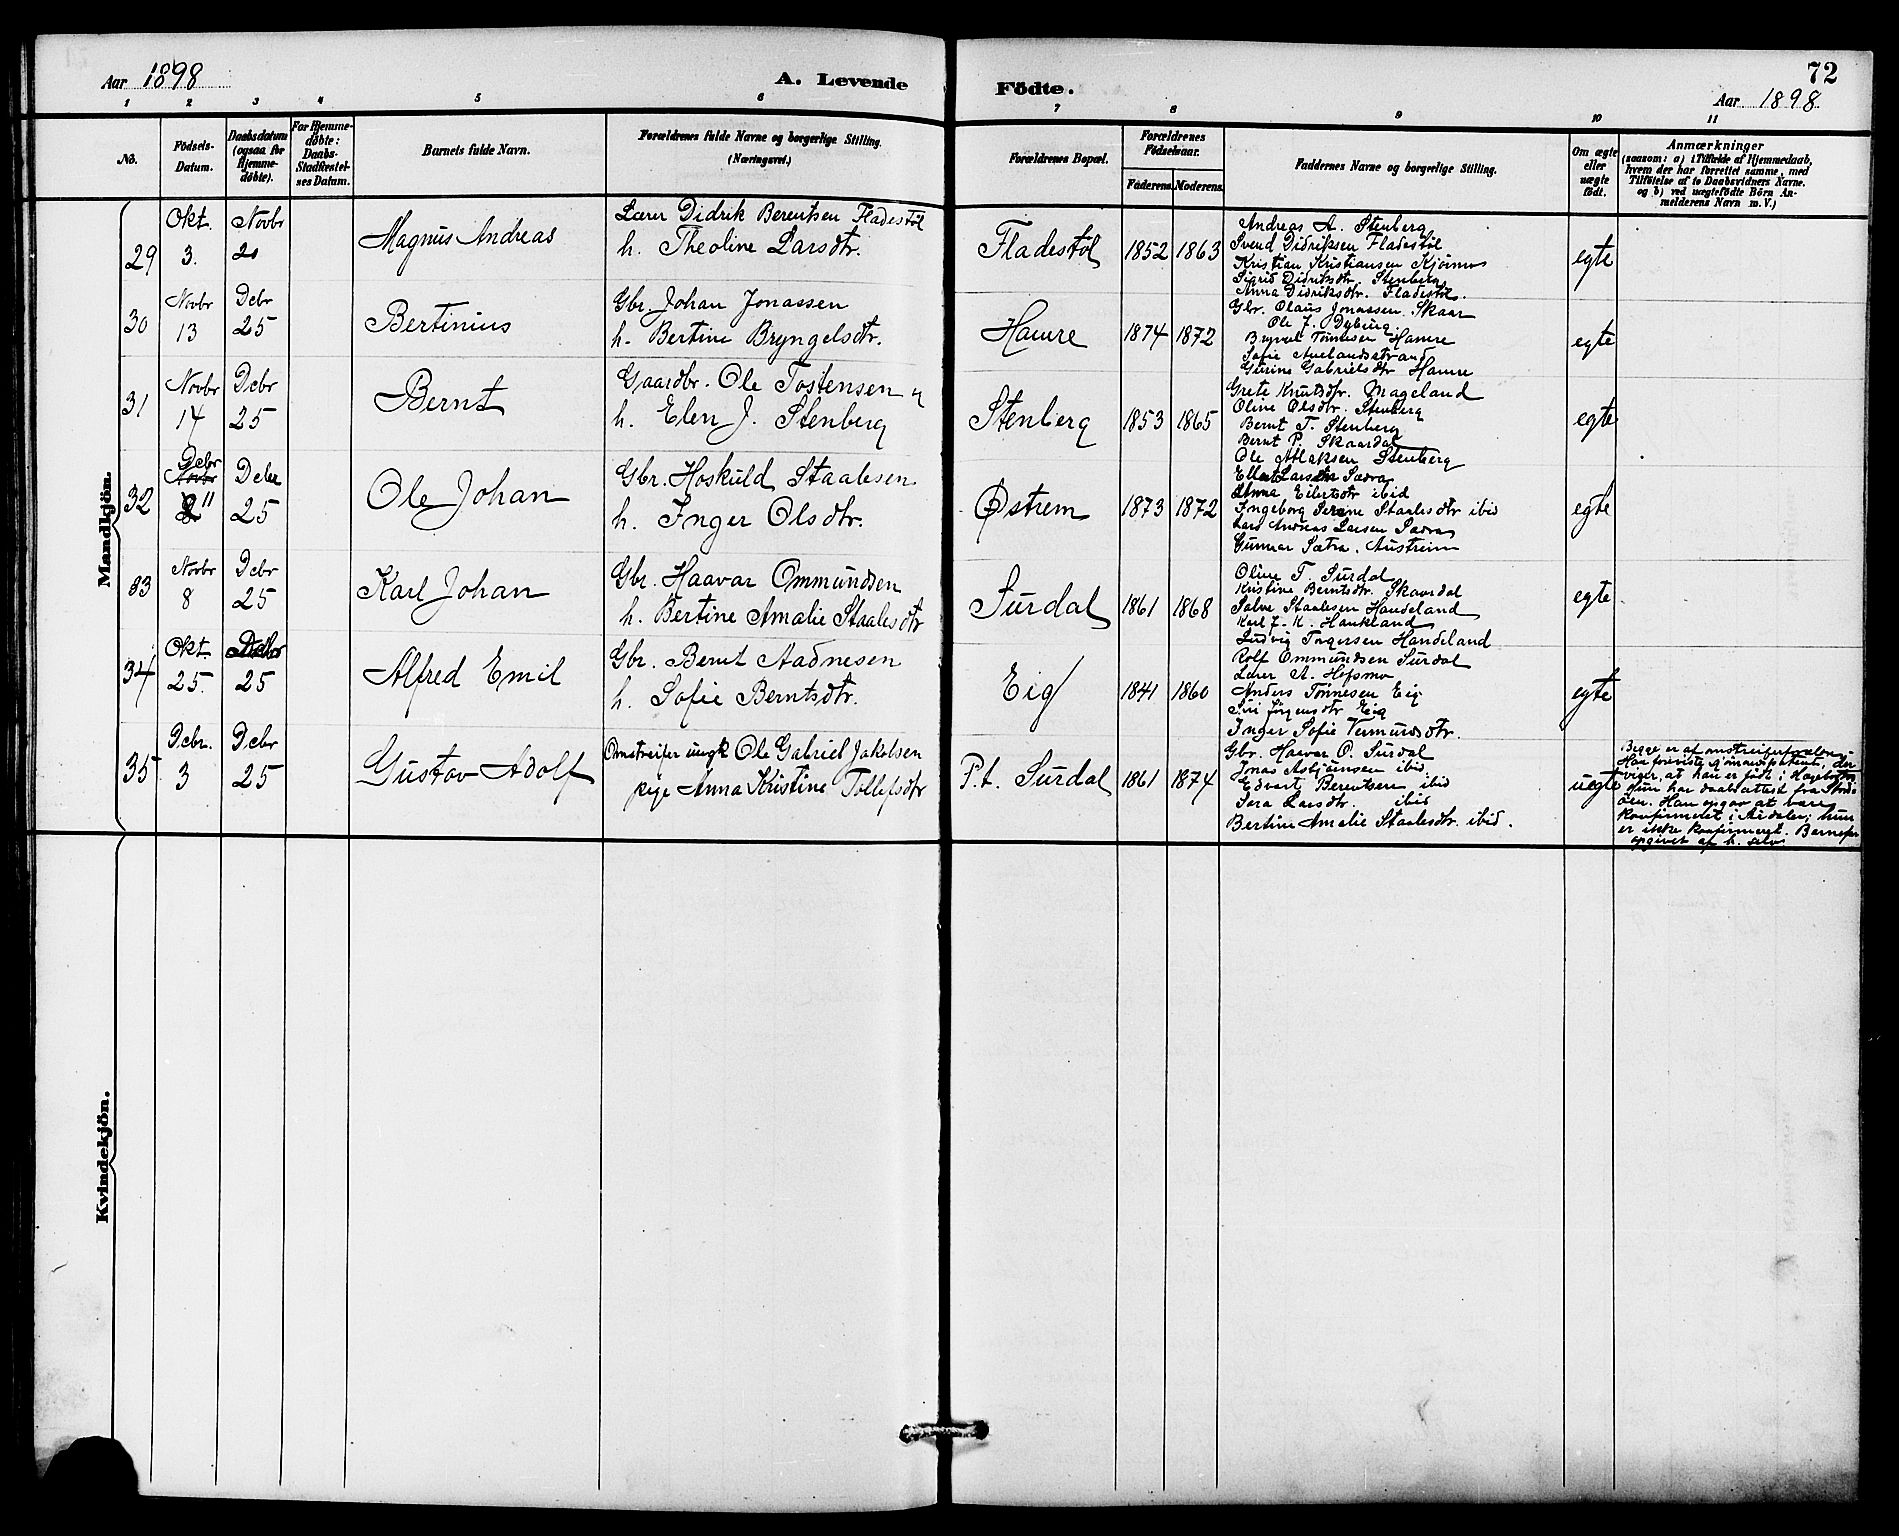 Aar 1898
A. Levende Födte.
72
Aar 1898
1 2 3 4 5 6 7 8 9 10 11
No.
Födsels-Datum.
Daabsdatum (ogsaa for Hjemme-døbte).
For Hjemme-døbte: Daabs-Stadfæstel-ses Datum.
Barnets fulde Navn.
Forældrenes fulde Navne og borgerlige Stilling.
(Næringsvei.)
Forældrenes Bopæl.
Forældrenes Födselsaar.
Faderens. Moderens.
Faddernes Navne og borgerlige Stilling.
Om ægte eller uægte født.
Anmærkninger
(saasom: a) i Tilfælde af Hjemmedaab,
hvem der har forrettet samme, med
Tilföielse af to Daabsvidners Navne.
og b) ved uægtefödte Börn An-
melderens Navn m. V.)
Mandkjön.
29
Okt.
3.
Novbr
20
Magnus Andreas
Lærer Didrik Berentsen Fladestøl
h. Theoline Larsdtr.
Fladestøl
1852 1863
Andreas A. Stenberg
Svend Didriksen Fladestøl
Kristian Kristiansen
Sigrid Didriksdtr. Stenberg
Anna Didriksdtr. Fladestøl.
egte
30
Novbr
13
Debr
25
Bertinius
Gbr Johan Jonassen
h. Bertine Bryngelsdtr.
Hamre
1874 1872
Gbr. Olaus Jonassen. Skaar
Ole J. Dyburg.
Tønnesen Hamre
Sofie
Gurine Gabrielsdtr Hamre
egte
31
Novbr
14
Debr
25
Bernt
Gaardbr. Ole Tostensen og
h. Elen J. Stenberg
Stenberg
1853 1865
Grete Knutsdtr. Mageland
Oline Olsdtr. Stenberg
Bernt T. Stenberg
Bernt P. Skaardal
Ole Atlaksen Stenberg
egte
32
Debr
Novbr
11
Debr
25
Ole Johan
Gbr. Hoskuld Staalesen
h. Inger Olsdtr.
Østrem
1873 1872
Anna Eilertsdtr ibid
Ingeborg Serine Staalesdtr ibid
Lars Andreas Larsen
Gunnar Sætra. Austreim
egte
33
Novbr
8
Debr
25
Karl Johan
Gbr. Haavar Ommundsen
h. Bertine Amalie Staalesdtr
Surdal
1861 1868
Oline T. Surdal
Kristine Berntsdtr. Skaardal
Salve Staalesen Handeland
Karl J. K. Haukland
Ludvig Ingersen Handeland
egte
34
Okt.
25.
Debr
25
Alfred Emil
Gbr. Bernt Aadnesen
h. Sofie Berntsdtr.
Eig
1841 1860
Rolf Ommundsen Surdal
Lærer A. Hofsmo
Anders Tønnesen Eig
Siri Jörgensdtr Eig
Inger Sofie
egte
35
Debr.
3
Debr
25
Gustav Adolf
Omstreifer ungk Ole Gabriel Jakobsen
pige Anna Kristine Tollefsdtr
P.t. Surdal
1861 1874
Gbr. Haavar O. Surdal
Jonas Asbjörnsen ibid.
Edvart Berentsen ibid
Sera Larsdtr. ibid
Bertine Amalie Staalesdtr. ibid.
uegte
Begge er af omstreiferforældre.
Han foreviste
viger, at han er født i
hun har daabsattest fra
öen. Han opgav at være
konfirmeret i hun
er ikke konfirmeret. Barnefar
opgivet af h. selv
Kvindekjön.